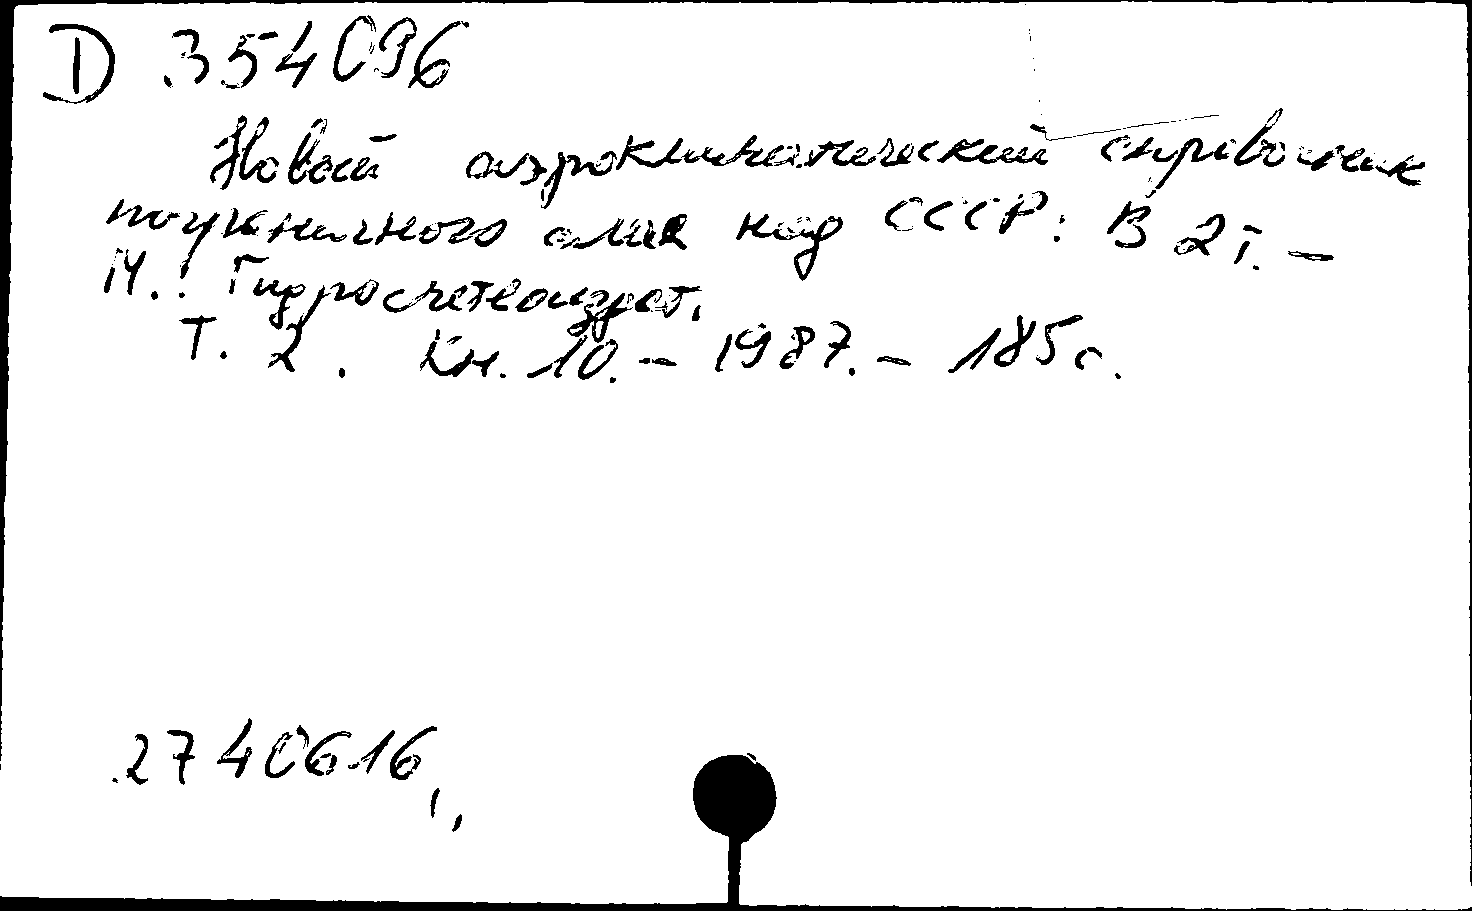 D 354096
Новый аэроклиматический справочник
пограничного слоя над СССР: В 2 т. –
М.: Гидрометеоиздат.
Т. 2. Кн. 10. – 1987. – 185 с.
2740616